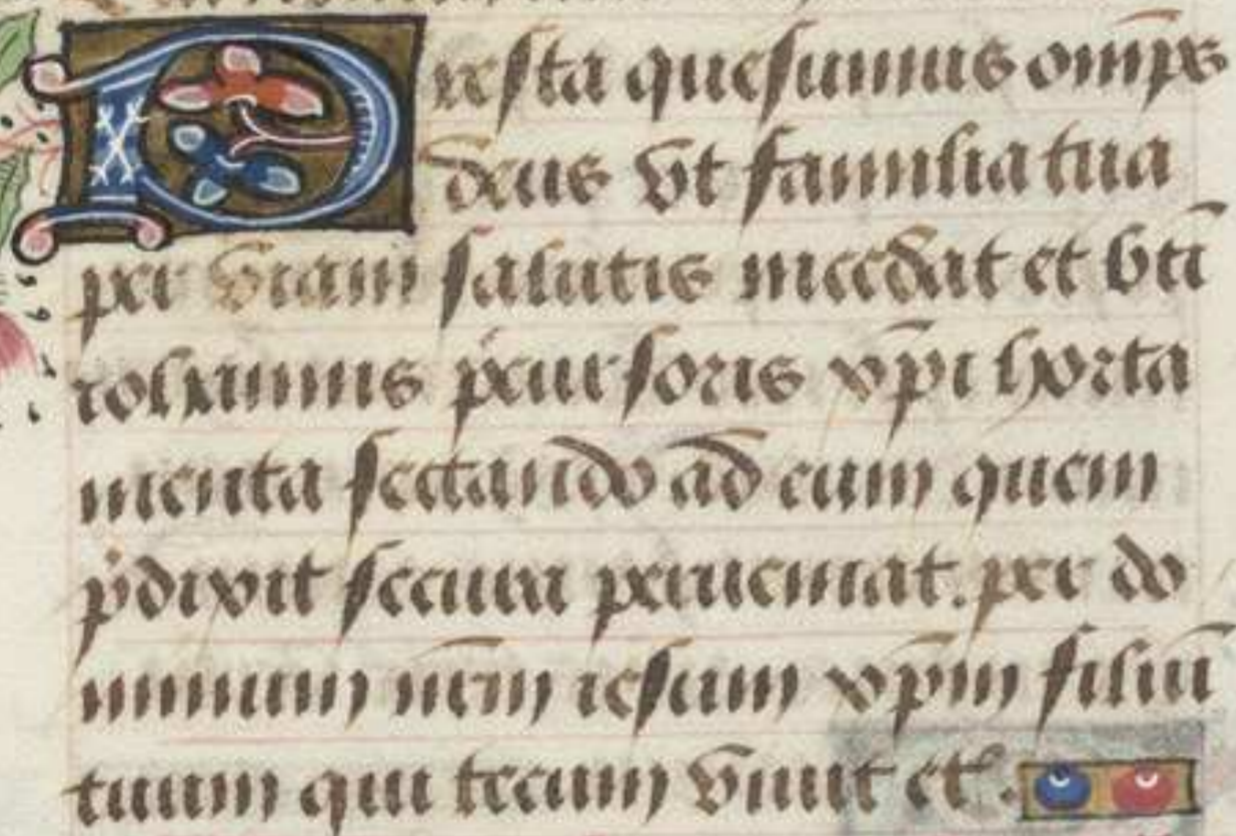 Presta quesumus om̄ps
deus vt familia tua
per viam salutis incedat et bt̄i
iohannis p̄cursoris xp̄i horta
menta sectando ad eum quem
p̄dixit secura perueniat. per do
minum nr̄m iesum xp̄m filiū
tuum qui tecum viuit et̄.